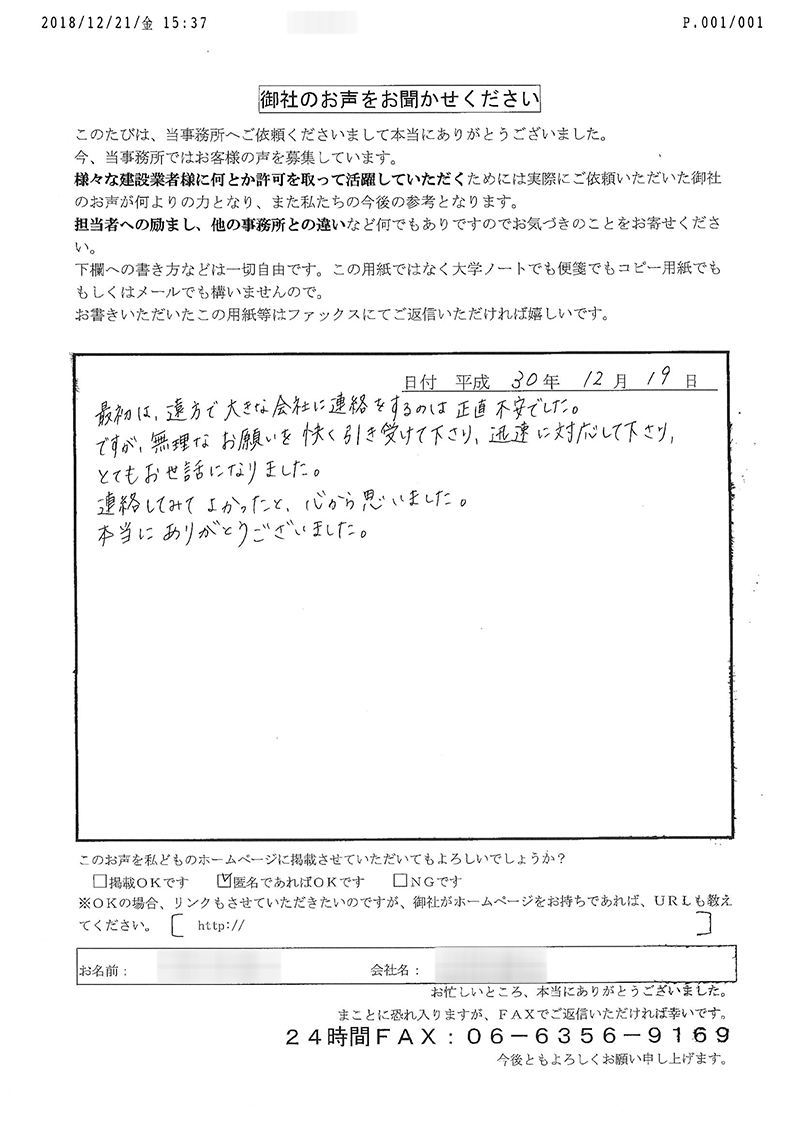 2018/12/21/金 15:37
P.001/001
御社のお声をお聞かせください
このたびは、当事務所へご依頼くださいまして本当にありがとうございました。
今、当事務所ではお客様の声を募集しています。
様々な建設業者様に何とか許可を取って活躍していただくためには実際にご依頼いただいた御社
のお声が何よりの力となり、また私たちの今後の参考となります。
担当者への励まし、他の事務所との違いなど何でもありですのでお気づきのことをお寄せくださ
い。
下欄への書き方などは一切自由です。この用紙ではなく大学ノートでも便箋でもコピー用紙でも
もしくはメールでも構いませんので。
お書きいただいたこの用紙等はファックスにてご返信いただければ嬉しいです。
日付 平成 30年 12月 19日
最初は、遠方で大きな会社に連絡をするのは正直不安でした。
ですが、無理なお願いを快く引き受けて下さり、迅速に対応して下さり、
とてもお世話になりました。
連絡してみてよかったと、心から思いました。
本当にありがとうございました。
このお声を私どものホームページに掲載させていただいてもよろしいでしょうか?
□掲載OKです ☑匿名であればOKです □NGです
※OKの場合、リンクもさせていただきたいのですが、御社がホームページをお持ちであれば、URLも教え
てください。 [ http:// ]
お名前: 会社名:
お忙しいところ、本当にありがとうございました。
まことに恐れ入りますが、FAXでご返信いただければ幸いです。
24時間FAX:06-6356-9169
今後ともよろしくお願い申し上げます。